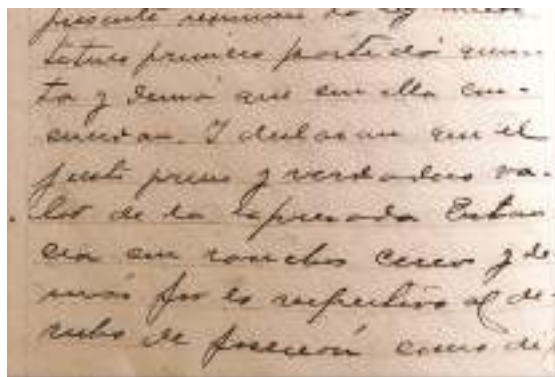 presente renuncian la ley
primero partida quin-
ta y demas que en ella con-
cuerdan. Y declaran que el
justo precio y verdadero va-
lor de la espresada Estan
cia con ranchos cerco y de
mas por lo respectivo al de-
recho de posecion como de